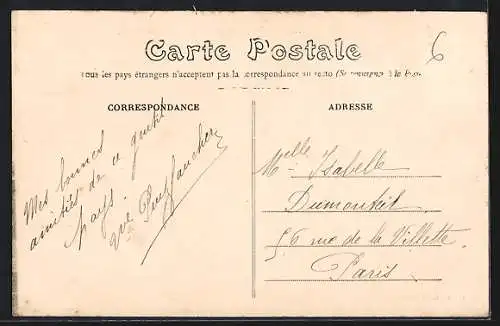 Carte Postale
6
Tous les pays étrangers n'acceptent pas la correspondance au recto (Se renseigner à la Poste
CORRESPONDANCE
ADRESSE
Mes bonnes
amitiés de ce gentil
pays.
Melle Isabelle
Dumonteil
56 rue de la Villette
Paris